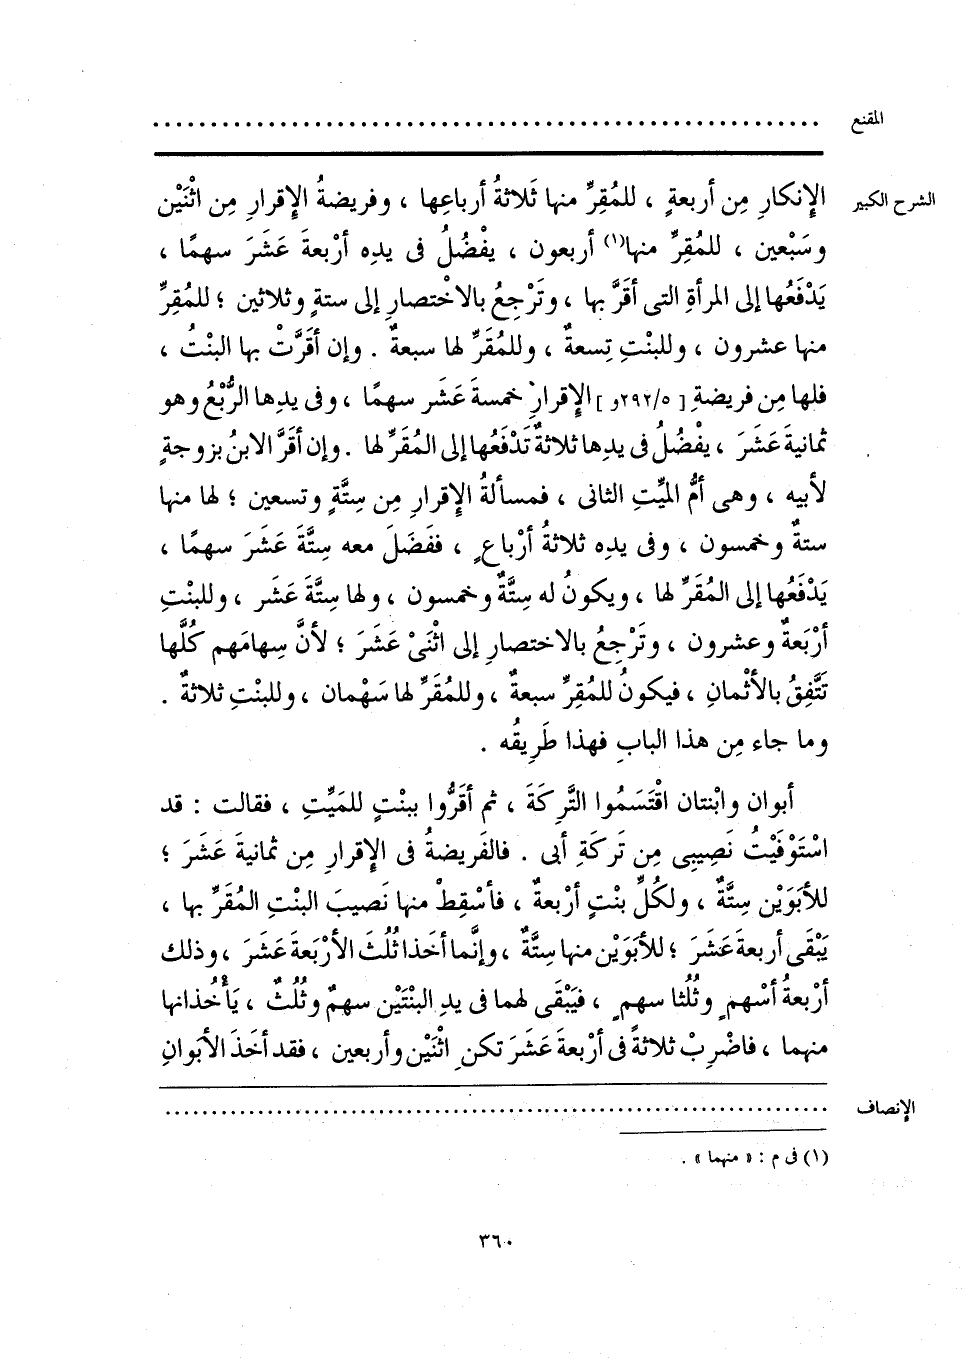 المقنع ............................................................
الشرح الكبير الإنكارِ مِن أربعةٍ ، للمُقِرِّ منها ثَلاثةُ أرباعِها ، وفريضةُ الإِقرارِ مِن اثْنَيْن
وسَبْعين ، للمُقِرِّ منها(١) أربعون ، يفْضُلُ فى يدِه أرْبعةَ عَشَرَ سهمًا ،
يَدْفَعُها إلى المرأةِ التى أقَرَّ بها ، وتَرْجِعُ بالاخْتصارِ إلى ستةٍ وثلاثين ؛ للمُقِرِّ
منها عشرون ، وللبنْتِ تِسعةٌ ، وللمُقَرِّ لها سبعةٌ . وإن أقَرَّتْ بها البنْتُ ،
فلها مِن فريضةِ [ ٢٩٢/٥و ] الإقرارِ خمسةَ عَشَر سهمًا ، وفى يدِها الرُّبْعُ وهو
ثمانيةَ عَشَرَ ، يفْضُلُ فى يدِها ثلاثةٌ تَدْفَعُها إلى المُقَرِّ لها . وإن أقَرَّ الابنُ بزوجةٍ
لأبيه ، وهى أمُّ الميِّتِ الثانى ، فمسألةُ الإِقرارِ مِن سِتَّةٍ وتسعين ؛ لها منها
ستةٌ وخمسون ، وفى يدِه ثلاثةُ أرْباعٍ ، ففَضَلَ معه سِتَّةَ عَشَرَ سهمًا ،
يَدْفَعُها إلى المُقَرِّ لها ، ويكونُ له سِتَّةٌ وخمسون ، ولها سِتَّةَ عَشَر ، وللبنْتِ
أرْبَعةٌ وعشرون ، وتَرْجِعُ بالاختصارِ إلى اثْنَىْ عَشَرَ ؛ لأنَّ سِهامَهم كُلَّها
تَتَّفِقُ بالأثْمانِ ، فيكونُ للمُقِرِّ سبعةٌ ، وللمُقَرِّ لها سَهْمان ، وللبنْتِ ثلاثةٌ .
وما جاء مِن هذا البابِ فهذا طَرِيقُه .
أبوان وابْنتان اقْتَسَمُوا التَّرِكَةَ ، ثم أقَرُّوا ببنْتٍ للمَيِّتِ ، فقالت : قد
اسْتَوْفَيْتُ نَصِيبِى مِن تَركَةِ أبى . فالفَريضةُ فى الإقرارِ مِن ثمانيةَ عَشَرَ ؛
للأبَوَيْن سِتَّةٌ ، ولكُلِّ بنْتٍ أرْبعةٌ ، فأسْقِطْ منها نَصيبَ البنْتِ المُقَرِّ بها ،
يَبْقَى أربعةَ عَشَرَ ؛ للأبَوَيْن منها سِتَّةٌ ، وإنَّما أخَذا ثُلُثَ الأرْبَعةَ عَشَرَ ، وذلك
أرْبعةُ أسْهمٍ وثُلُثا سهمٍ ، فيَبْقَى لهما فى يدِ البنْتَيْن سهمٌ وثُلُثٌ ، يَأْخُذانها
منهما ، فاضْرِبْ ثلاثةً فى أرْبعةَ عَشَرَ تكنِ اثْنَيْن وأربعين ، فقد أخَذَ الأبَوانِ
الإنصاف ............................................................
(١) فى م : « منهما » .
٣٦٠